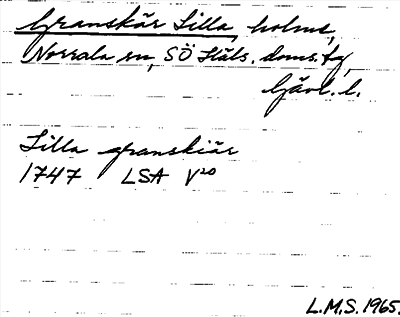 Granskär Lilla, holme,
Norrala sn, SÖ Häls. doms. fg,
Gävl. l.
Lilla granskiär
1747 LSA V20
L.M.S. 1965.